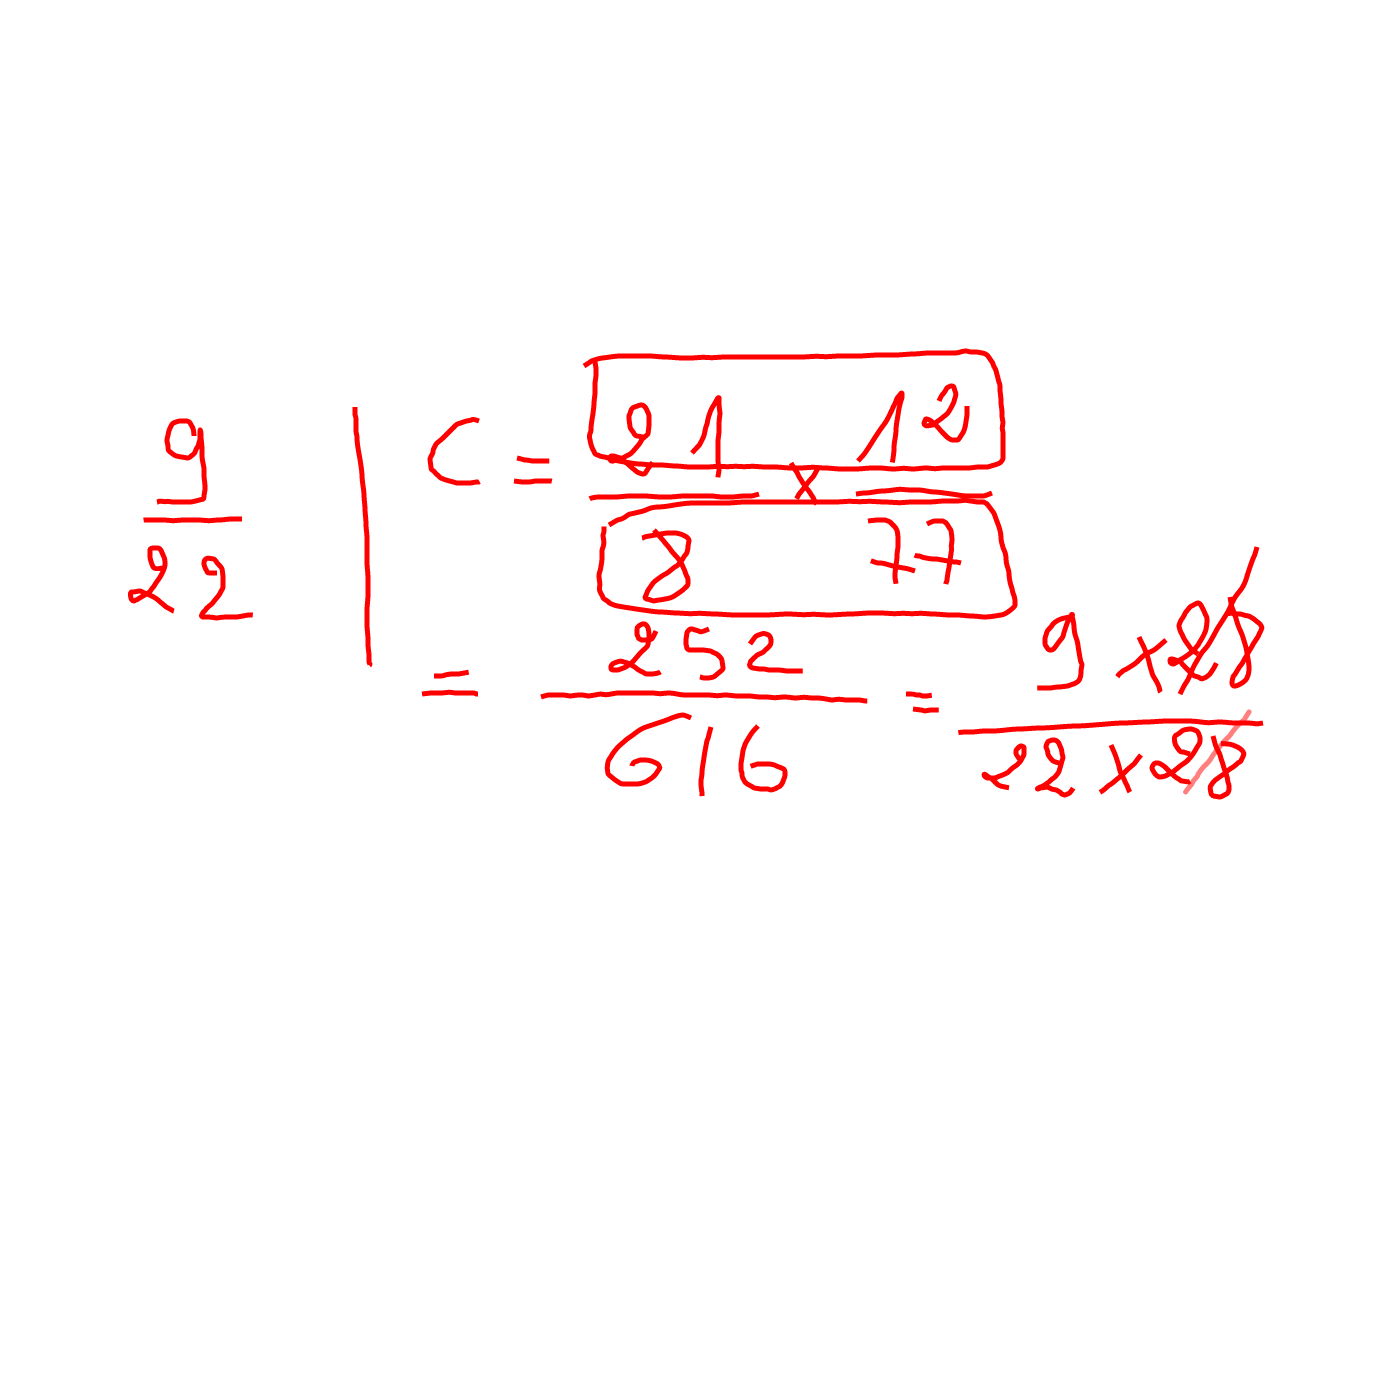 9/22 | C = 21/8 x 12/77
= 252/616 = 9 x 28/22 x 28